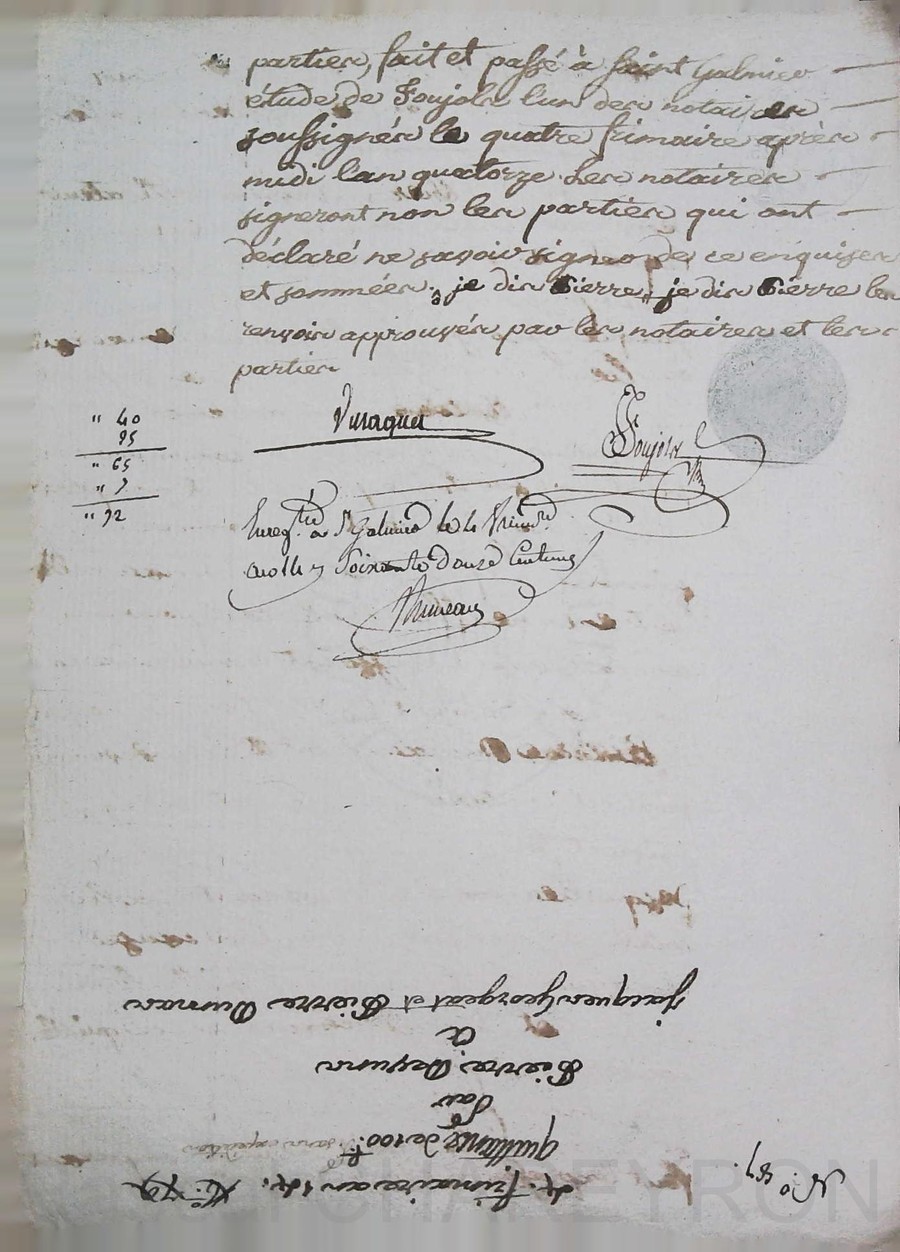 parties, fait et passé à Saint Galmier
étude de Foujols l'un des notaires
soussignés le quatre frimaire après
midi l'an quatorze. Les notaires
signeront non les parties qui ont
déclaré ne savoir signer de ce enquises
et sommées. je dis Pierre, je dis Pierre les
renvois approuvés par les notaires et les
parties
" 40
25
" 65
" 7
" 72
Foujols
Enreg.tré à St Galmier le 4 frimre
an 14 Soixante douze Centimes
N.o 87.
4. frimaire an 14.
quittance de 100 f. sans expédition
Par
Pierre
à
Jacques Georgeat et Pierre Dumas
CHAREYRON